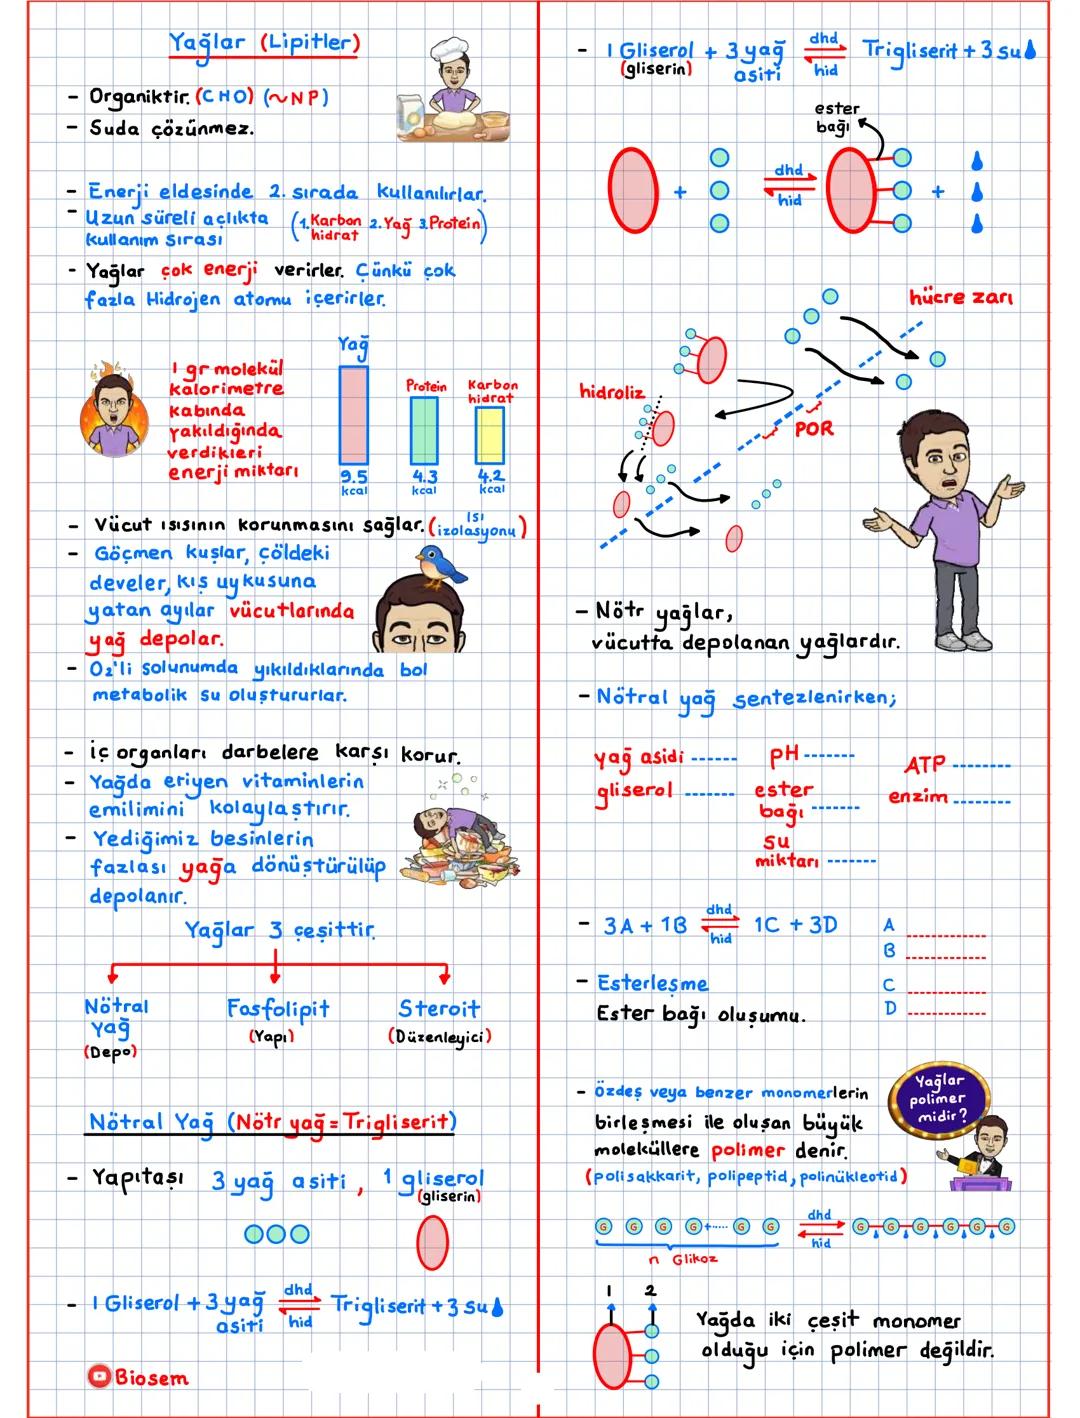 Yağlar (Lipitler)
- Organiktir. (CHO) (~NP)
- Suda çözünmez.
- Enerji eldesinde 2. sırada kullanılırlar.
- Uzun süreli açlıkta kullanım sırası (1. Karbon hidrat 2. Yağ 3. Protein)
- Yağlar çok enerji verirler. Çünkü çok
fazla Hidrojen atomu içerirler.
1 gr molekül
kalorimetre
kabında
yakıldığında
verdikleri
enerji miktarı
Yağ
Protein
Karbon
hidrat
9.5
kcal
4.3
kcal
4.2
kcal
- Vücut ısısının korunmasını sağlar. (ısı izolasyonu)
- Göçmen kuşlar, çöldeki
develer, kış uykusuna
yatan ayılar vücutlarında
yağ depolar.
- O₂'li solunumda yıkıldıklarında bol
metabolik su oluştururlar.
- iç organları darbelere karşı korur.
- Yağda eriyen vitaminlerin
emilimini kolaylaştırır.
- Yediğimiz besinlerin
fazlası yağa dönüştürülüp
depolanır.
Yağlar 3 çeşittir.
Nötral
yağ
(Depo)
Fosfolipit
(Yapı)
Steroit
(Düzenleyici)
Nötral Yağ (Nötr yağ = Trigliserit)
- Yapıtaşı 3 yağ asiti, 1 gliserol
(gliserin)
- 1 Gliserol + 3 yağ asiti dhd hid Trigliserit + 3 su
Biosem
- 1 Gliserol + 3 yağ asiti dhd hid Trigliserit + 3 su
(gliserin)
ester
bağı
+ dhd hid +
hücre zarı
hidroliz
POR
- Nötr yağlar,
vücutta depolanan yağlardır.
- Nötral yağ sentezlenirken;
yağ asidi ------
gliserol ------
pH ------
ester
bağı ------
su
miktarı ------
ATP ------
enzim ------
- 3A + 1B dhd hid 1C + 3D
A ------
B ------
C ------
D ------
- Esterleşme
Ester bağı oluşumu.
- Özdeş veya benzer monomerlerin
birleşmesi ile oluşan büyük
moleküllere polimer denir.
(polisakkarit, polipeptid, polinükleotid)
Yağlar
polimer
midir?
G G G G +...... G G dhd hid G G G G G G
n Glikoz
1 2
Yağda iki çeşit monomer
olduğu için polimer değildir.